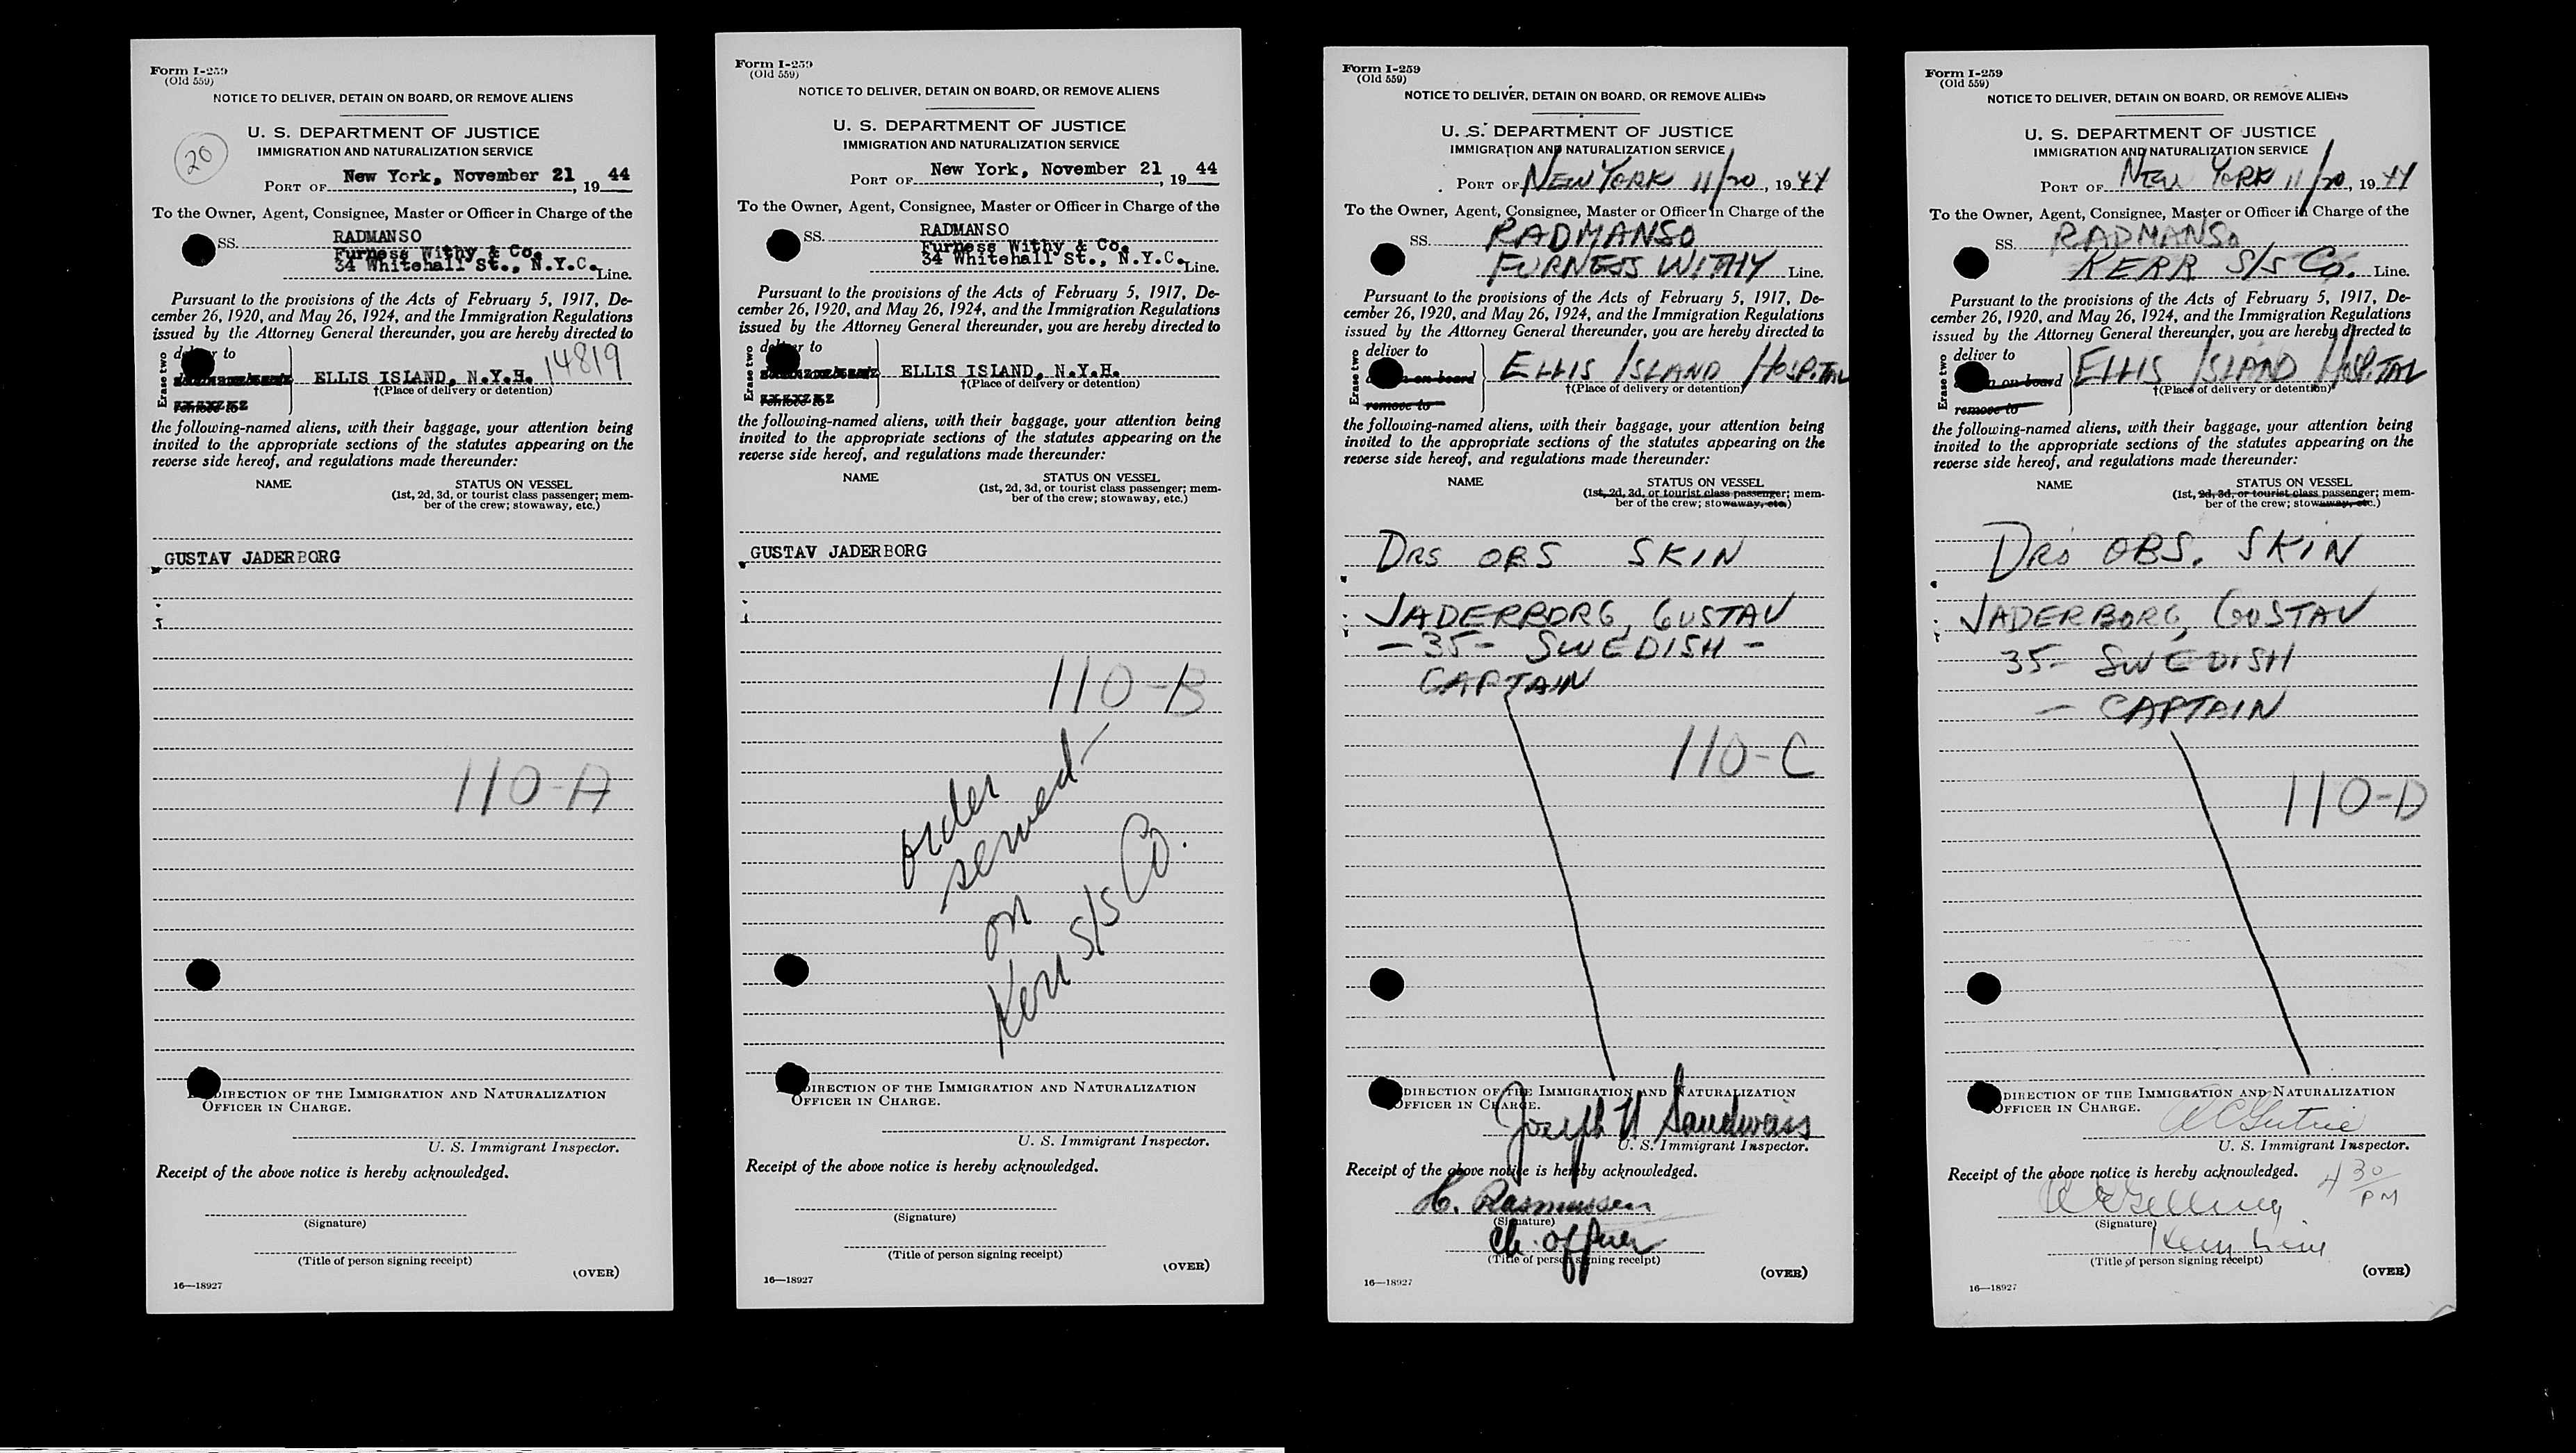 Form I-259
(Old 559)
NOTICE TO DELIVER, DETAIN ON BOARD, OR REMOVE ALIENS
U. S. DEPARTMENT OF JUSTICE
IMMIGRATION AND NATURALIZATION SERVICE
20
PORT OF New York, November 21, 19 44
To the Owner, Agent, Consignee, Master or Officer in Charge of the
SS. RADMANSO
Furness Withy & Co.
34 Whitehall St., N.Y.C. Line.
Pursuant to the provisions of the Acts of February 5, 1917, De-
cember 26, 1920, and May 26, 1924, and the Immigration Regulations
issued by the Attorney General thereunder, you are hereby directed to
Erase two
to
ELLIS ISLAND, N.Y.H. 14819
†(Place of delivery or detention)
remove to
the following-named aliens, with their baggage, your attention being
invited to the appropriate sections of the statutes appearing on the
reverse side hereof, and regulations made thereunder:
NAME STATUS ON VESSEL
(1st, 2d, 3d, or tourist class passenger; mem-
ber of the crew; stowaway, etc.)
GUSTAV JADERBORG
110-A
DIRECTION OF THE IMMIGRATION AND NATURALIZATION
OFFICER IN CHARGE.
U. S. Immigrant Inspector.
Receipt of the above notice is hereby acknowledged.
(Signature)
(Title of person signing receipt)
(OVER)
16—18927
Form I-259
(Old 559)
NOTICE TO DELIVER, DETAIN ON BOARD, OR REMOVE ALIENS
U. S. DEPARTMENT OF JUSTICE
IMMIGRATION AND NATURALIZATION SERVICE
PORT OF New York, November 21, 19 44
To the Owner, Agent, Consignee, Master or Officer in Charge of the
SS. RADMANSO
Furness Withy & Co.
34 Whitehall St., N.Y.C. Line.
Pursuant to the provisions of the Acts of February 5, 1917, De-
cember 26, 1920, and May 26, 1924, and the Immigration Regulations
issued by the Attorney General thereunder, you are hereby directed to
Erase two
to
ELLIS ISLAND, N.Y.H.
†(Place of delivery or detention)
the following-named aliens, with their baggage, your attention being
invited to the appropriate sections of the statutes appearing on the
reverse side hereof, and regulations made thereunder:
NAME STATUS ON VESSEL
(1st, 2d, 3d, or tourist class passenger; mem-
ber of the crew; stowaway, etc.)
GUSTAV JADERBORG
110-B
order
served
on
Kerr S/S Co.
DIRECTION OF THE IMMIGRATION AND NATURALIZATION
OFFICER IN CHARGE.
U. S. Immigrant Inspector.
Receipt of the above notice is hereby acknowledged.
(Signature)
(Title of person signing receipt)
(OVER)
16—18927
Form I-259
(Old 559)
NOTICE TO DELIVER, DETAIN ON BOARD, OR REMOVE ALIENS
U. S. DEPARTMENT OF JUSTICE
IMMIGRATION AND NATURALIZATION SERVICE
PORT OF NEW YORK 11/20, 19 44
To the Owner, Agent, Consignee, Master or Officer in Charge of the
SS. RADMANSO
FURNESS WITHY Line.
Pursuant to the provisions of the Acts of February 5, 1917, De-
cember 26, 1920, and May 26, 1924, and the Immigration Regulations
issued by the Attorney General thereunder, you are hereby directed to
Erase two
deliver to
on board ELLIS ISLAND HOSPITAL
†(Place of delivery or detention)
remove to
the following-named aliens, with their baggage, your attention being
invited to the appropriate sections of the statutes appearing on the
reverse side hereof, and regulations made thereunder:
NAME STATUS ON VESSEL
(1st, 2d, 3d, or tourist class passenger; mem-
ber of the crew; stowaway, etc.)
DRS OBS SKIN
JADERBORG, GUSTAV
— 35 - SWEDISH —
CAPTAIN
110-C
DIRECTION OF THE IMMIGRATION AND NATURALIZATION
OFFICER IN CHARGE.
Joseph Sandweiss
U. S. Immigrant Inspector.
Receipt of the above notice is hereby acknowledged.
H. Rasmussen
(Signature)
Ch. officer
(Title of person signing receipt)
(OVER)
16—18927
Form I-259
(Old 559)
NOTICE TO DELIVER, DETAIN ON BOARD, OR REMOVE ALIENS
U. S. DEPARTMENT OF JUSTICE
IMMIGRATION AND NATURALIZATION SERVICE
PORT OF NEW YORK 11/20, 19 44
To the Owner, Agent, Consignee, Master or Officer in Charge of the
SS. RADMANSO
KERR S/S Co. Line.
Pursuant to the provisions of the Acts of February 5, 1917, De-
cember 26, 1920, and May 26, 1924, and the Immigration Regulations
issued by the Attorney General thereunder, you are hereby directed to
Erase two
deliver to
on board ELLIS ISLAND HOSPITAL
†(Place of delivery or detention)
remove to
the following-named aliens, with their baggage, your attention being
invited to the appropriate sections of the statutes appearing on the
reverse side hereof, and regulations made thereunder:
NAME STATUS ON VESSEL
(1st, 2d, 3d, or tourist class passenger; mem-
ber of the crew; stowaway, etc.)
DRS OBS. SKIN
JADERBORG, GUSTAV
35- SWEDISH
— CAPTAIN
110-D
DIRECTION OF THE IMMIGRATION AND NATURALIZATION
OFFICER IN CHARGE.
U. S. Immigrant Inspector.
Receipt of the above notice is hereby acknowledged. 4 30 PM
(Signature)
(Title of person signing receipt)
(OVER)
16—18927